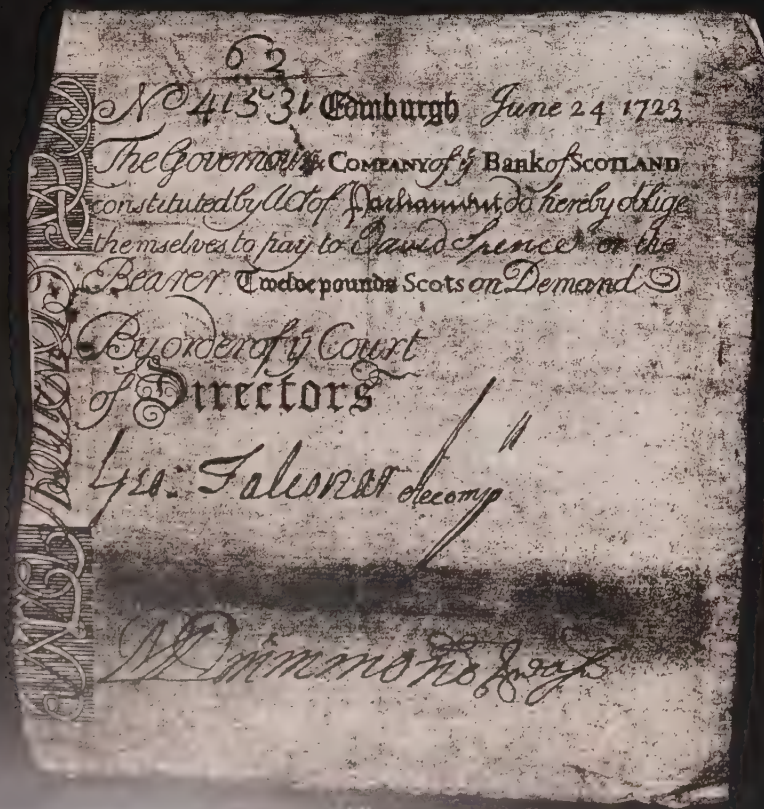 62
No 41531 Edinburgh June 24 1723
The Governour & COMPANY of ye Bank of SCOTLAND
constituted by Act of Parliament do hereby oblige
themselves to pay to David Spence or the
Bearer Twelve pounds Scots on Demand
By order of ye Court
of Directors
Geo: Falconar
Drummond